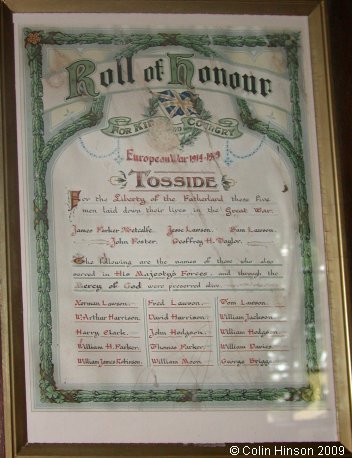 Roll of Honour.
FOR KING AND COUNTRY
European War 1914-1919
TOSSIDE
For the Liberty of the Fatherland these five
men laid down their lives in the Great War.
James Parker Metcalfe. Jesse Lawson. Sam Lawson.
John Foster. Geoffrey H. Taylor.
The following are the names of those who also
served in His Majesty's Forces, and through the
Mercy of God were preserved alive.
Norman Lawson. Fred Lawson. Tom Lawson.
Wm. Arthur Harrison. David Harrison. William Jackson.
Harry Clark. John Hodgson. William Hodgson.
William H. Parker. Thomas Parker. William Davies.
William James Robinson. William Moon. George Briggs.
© Colin Hinson 2009